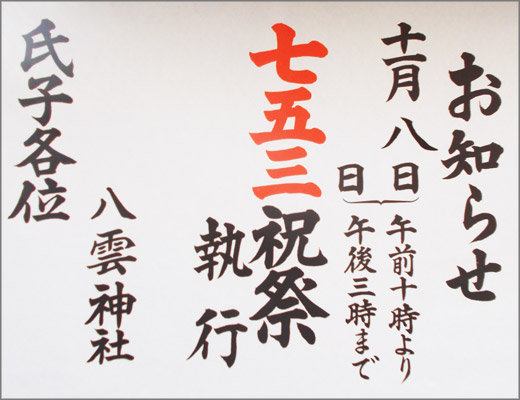 お知らせ
十一月八日
日
午前十時より
午後三時まで
七五三祝祭
執行
八雲神社
氏子各位